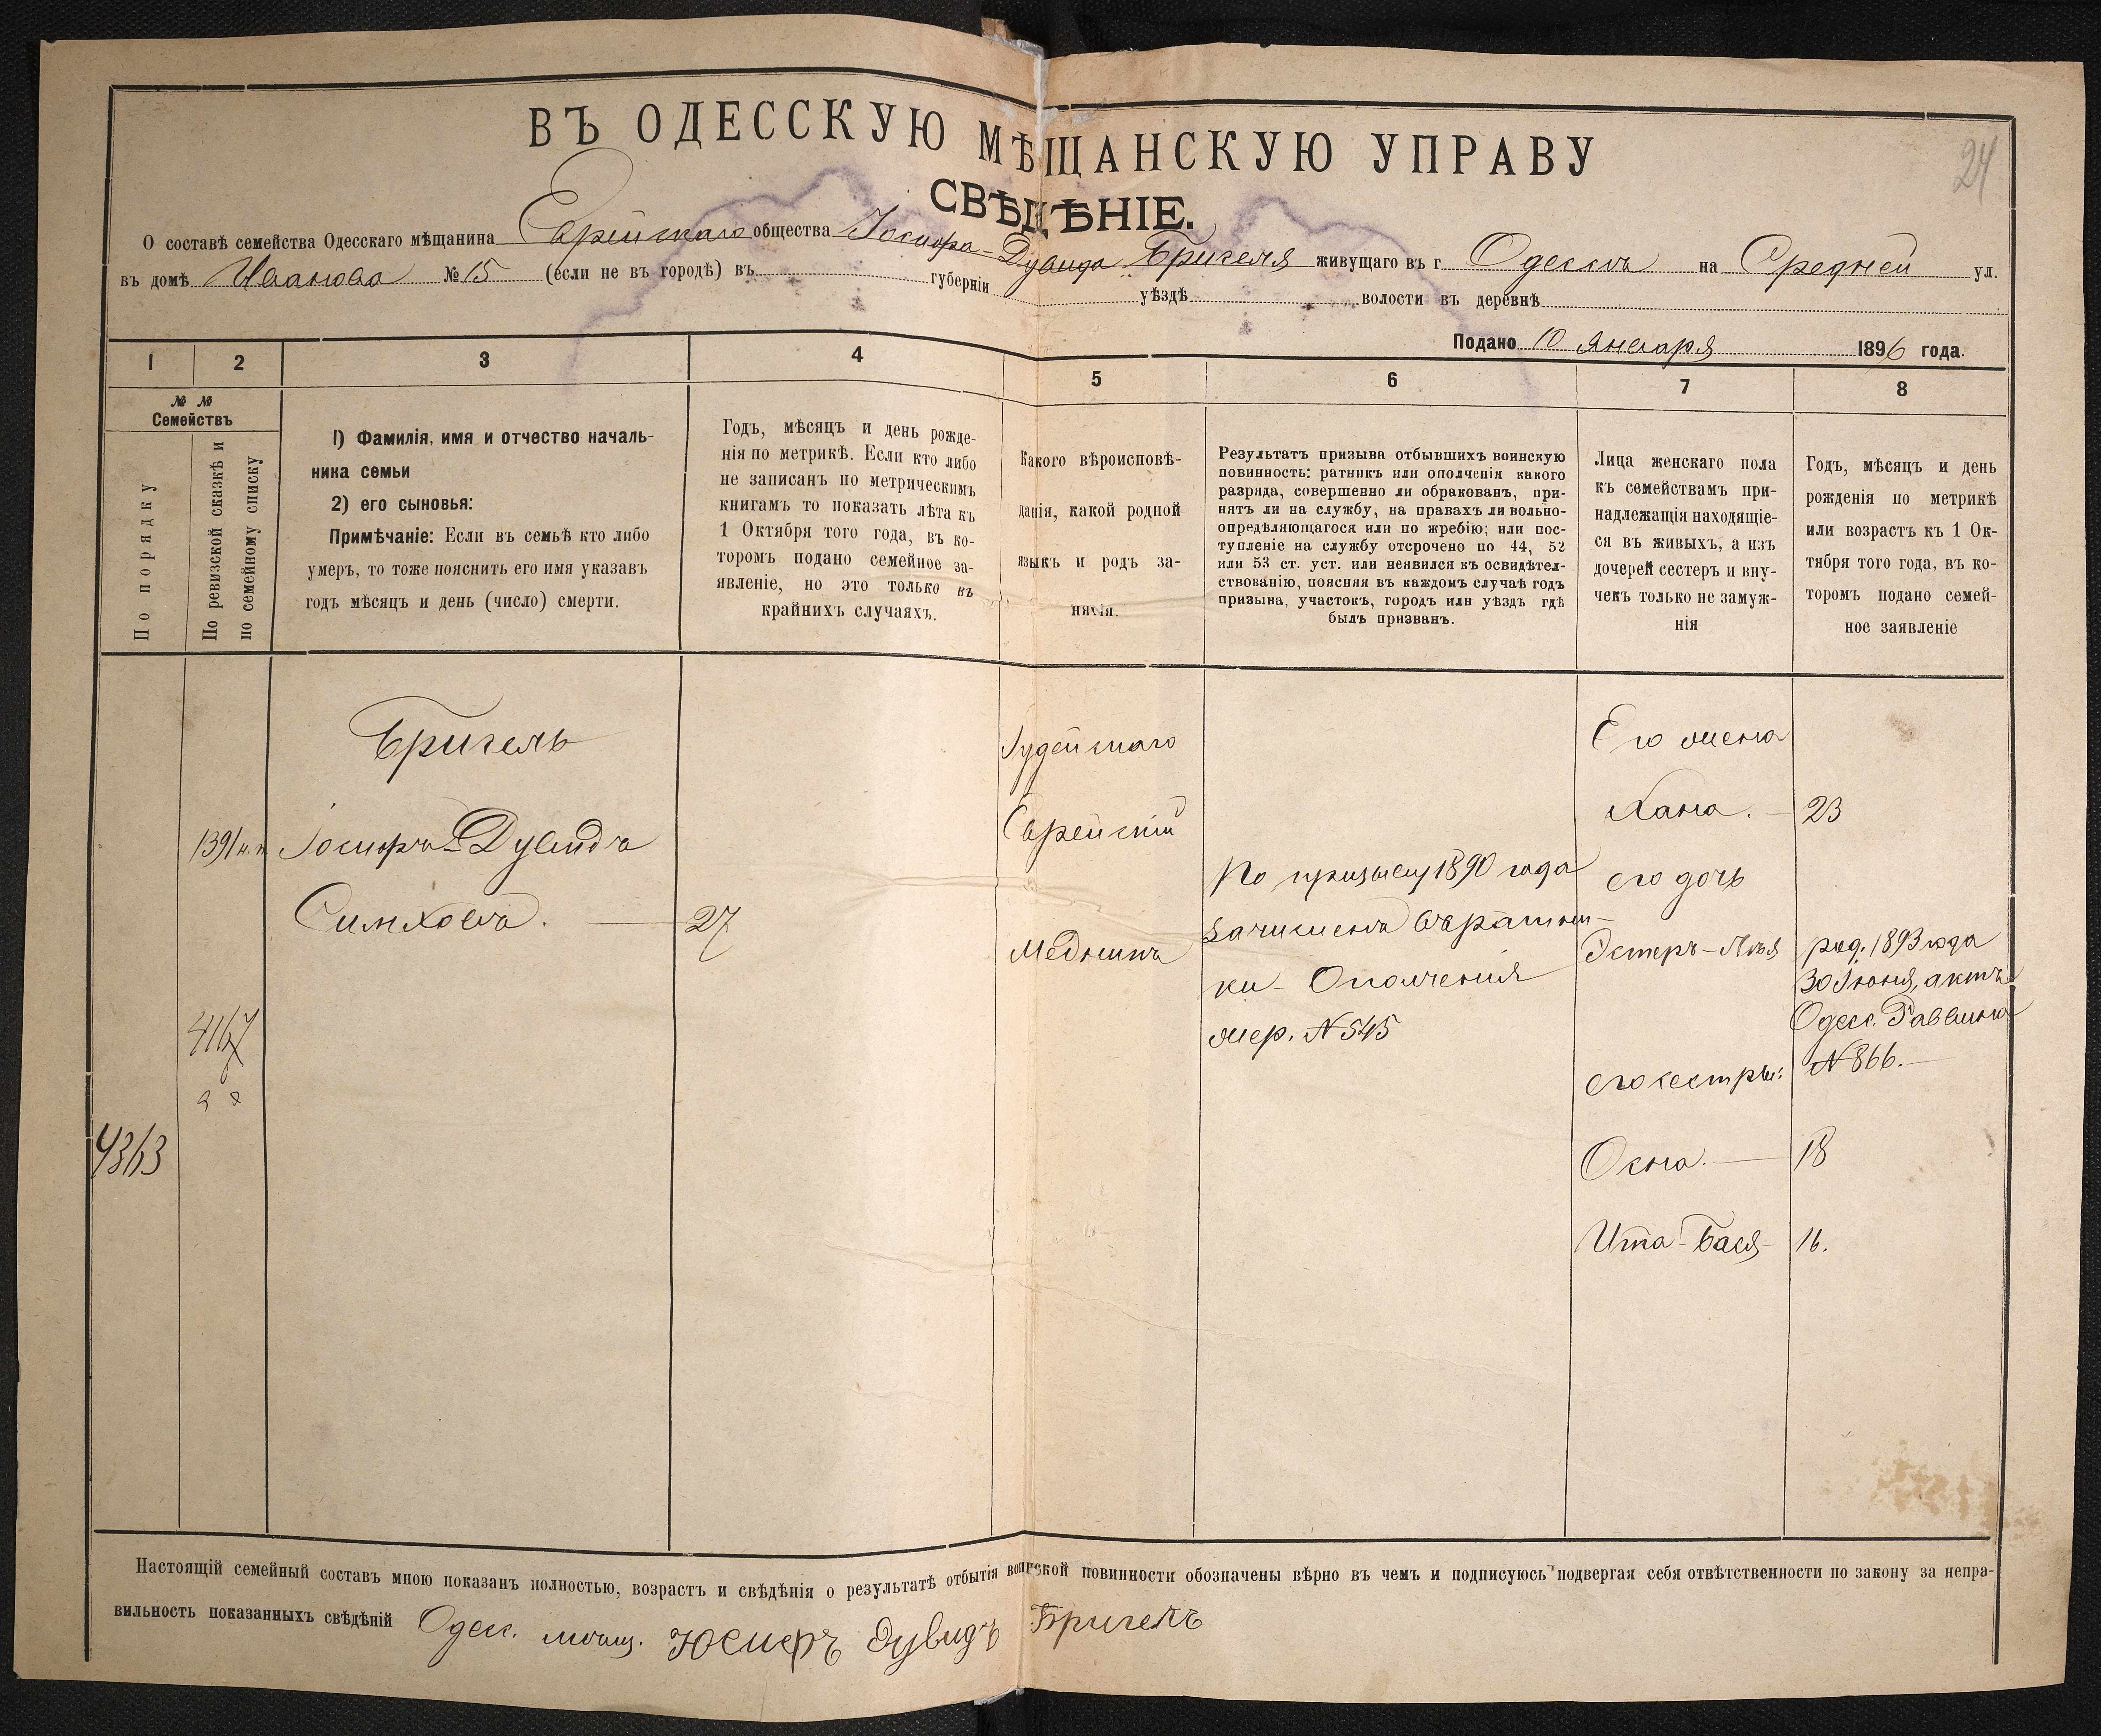 24
ВЪ ОДЕССКУЮ МѢЩАНСКУЮ УПРАВУ
СВѢДѢНІЕ.
О составѣ семейства Одесскаго мѣщанина Еврейскаго общества Іосифа-Дувида Бригеля живущаго въ г. Одессѣ на Средней ул.
въ домѣ Иванова № 15 (если не въ городѣ) въ губерніи уѣздѣ волости въ деревнѣ
Подано 10 Января 1896 года.
1
2
3
4
5
6
7
8
№ №
Семействъ
По порядку
По ревизской сказкѣ и
по семейному списку
1) Фамилія, имя и отчество началь-
ника семьи
2) его сыновья:
Примѣчаніе: Если въ семьѣ кто либо
умеръ, то тоже пояснить его имя указавъ
годъ мѣсяцъ и день (число) смерти.
Годъ, мѣсяцъ и день рожде-
нія по метрикѣ. Если кто либо
не записанъ по метрическимъ
книгамъ то показать лѣта къ
1 Октября того года, въ ко-
торомъ подано семейное за-
явленіе, но это только въ
крайнихъ случаяхъ.
Какого вѣроисповѣ-
данія, какой родной
языкъ и родъ за-
нятія.
Результатъ призыва отбывшихъ воинскую
повинность: ратникъ или ополченія какого
разряда, совершенно ли обракованъ, при-
нятъ ли на службу, на правахъ ли вольно-
опредѣляющагося или по жребію; или пос-
тупленіе на службу отсрочено по 44, 52
или 53 ст. уст. или неявился къ освидѣтел-
ствованію, поясняя въ каждомъ случаѣ годъ
призыва, участокъ, городъ или уѣздъ гдѣ
былъ призванъ.
Лица женскаго пола
къ семействамъ при-
надлежащія находящіе-
ся въ живыхъ, а изъ
дочерей сестеръ и вну-
чекъ только не замуж-
нія
Годъ, мѣсяцъ и день
рожденія по метрикѣ
или возрастъ къ 1 Ок-
тября того года, въ ко-
торомъ подано семей-
ное заявленіе
4363
1391 н.п.
4167
Бригель
Іосифъ-Дувидъ
Симховъ. — 27
Іудейскаго
Еврейскій
Мѣдникъ
По призыву 1890 года
зачисленъ въ ратни-
ки Ополченія
жер. № 545
Его жена
Хана. — 23
его дочь
Эстеръ-Лея
род. 1893 года
30 Іюня, актъ
Одесс. Раввина
№ 866. —
его сестры:
Осна. — 18
Ита-Бася — 16.
Настоящій семейный составъ мною показанъ полностью, возрастъ и свѣдѣнія о результатѣ отбытія воинской повинности обозначены вѣрно въ чемъ и подписуюсь подвергая себя отвѣтственности по закону за непра-
вильность показанныхъ свѣдѣній Одесс. мѣщ. Юсифъ Дувидъ Бригель